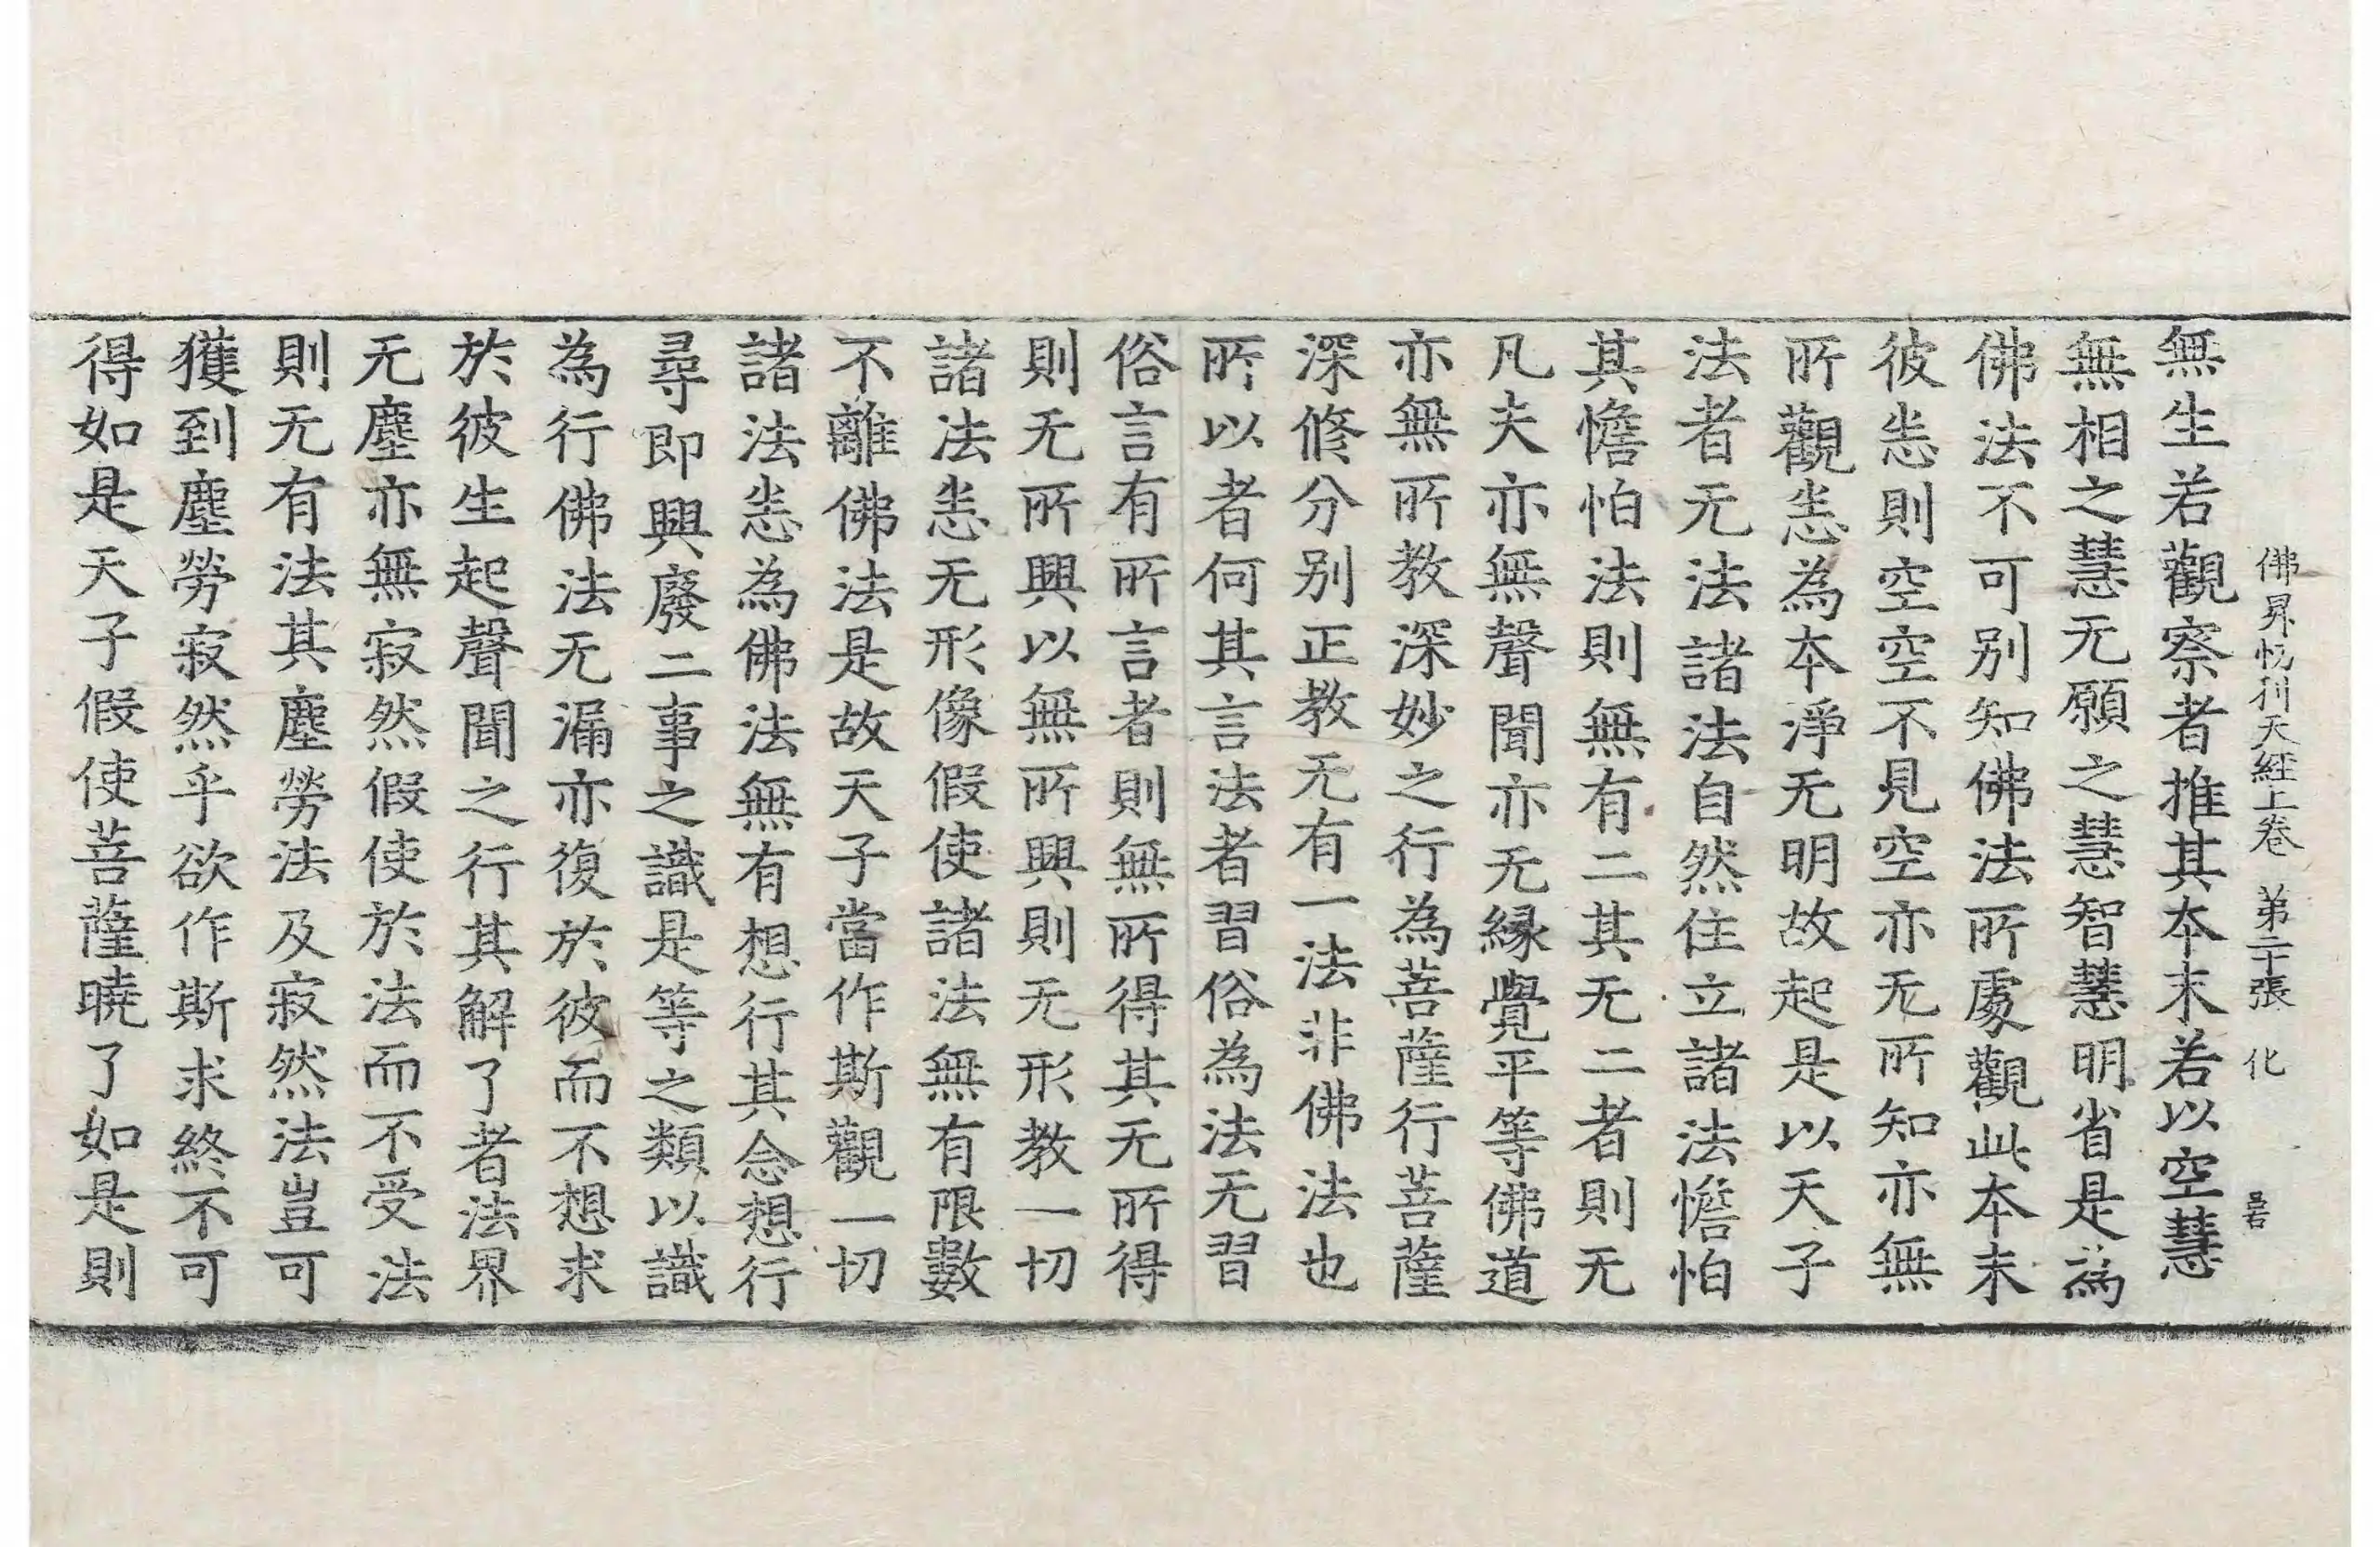 佛昇忉利天經上卷 第二十張 化
無生若觀察者推其本末若以空慧
無相之慧无願之慧智慧明省是為
佛法不可別知佛法所處觀此本末
彼恙則空空不見空亦无所知亦無
所觀恙為本淨无明故起是以天子
法者无法諸法自然住立諸法憺怕
其憺怕法則無有二其无二者則无
凡夫亦無聲聞亦无緣覺平等佛道
亦無所教深妙之行為菩薩行菩薩
深修分別正教无有一法非佛法也
所以者何其言法者習俗為法无習
俗言有所言者則無所得其无所得
則无所興以無所興則无形教一切
諸法恙无形像假使諸法無有限數
不離佛法是故天子當作斯觀一切
諸法恙為佛法無有想行其念想行
尋即興廢二事之識是等之類以識
為行佛法无漏亦復於彼而不想求
於彼生起聲聞之行其解了者法界
无塵亦無寂然假使於法而不受法
則无有法其塵勞法及寂然法豈可
獲到塵勞寂然乎欲作斯求終不可
得如是天子假使菩薩曉了如是則